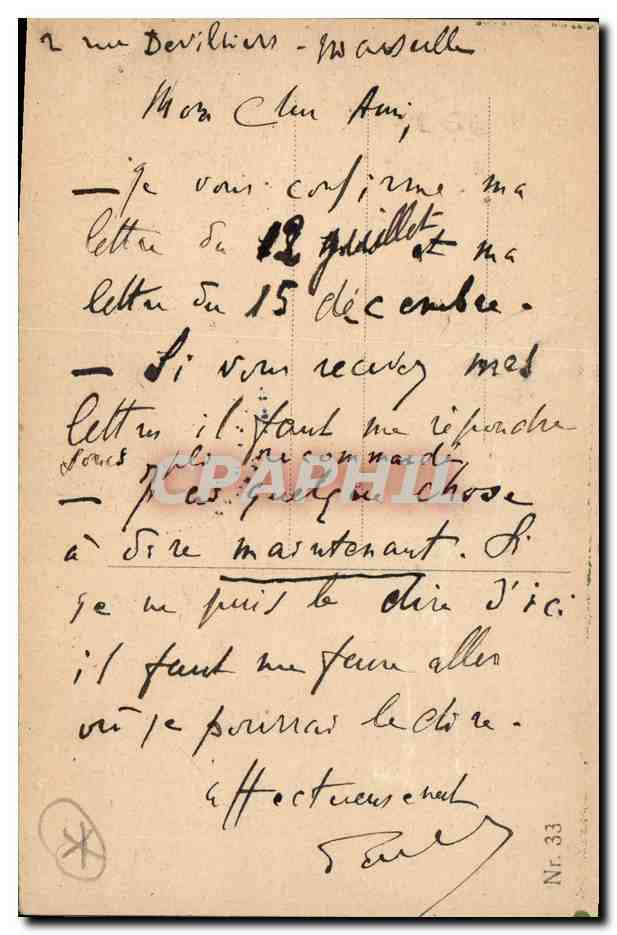 2 rue Devilliers - Marseille
Mon Cher Ami,
— Je vous confirme ma
lettre du 12 juillet et ma
lettre du 15 décembre.
— Si vous recevez mes
lettres il faut me répondre
sous pli recommandé
— J'ai quelque chose
à dire maintenant. Si
je ne puis le dire d'ici
il faut me faire aller
où je pourrai le dire.
Affectueusement
CPAPHIL
Nr. 33